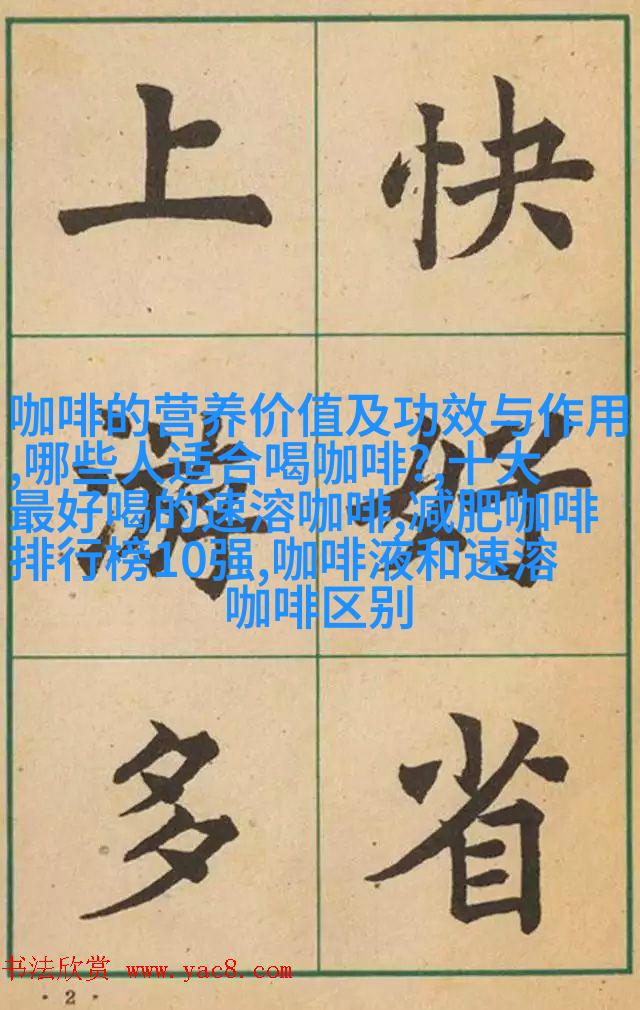 上游多
快好省
咖啡的营养价值及功效与作用
,哪些人适合喝咖啡?,十大
最好喝的速溶咖啡,减肥咖啡
排行榜10强,咖啡液和速溶
咖啡区别
书法欣赏 www.yac8.com
·2·